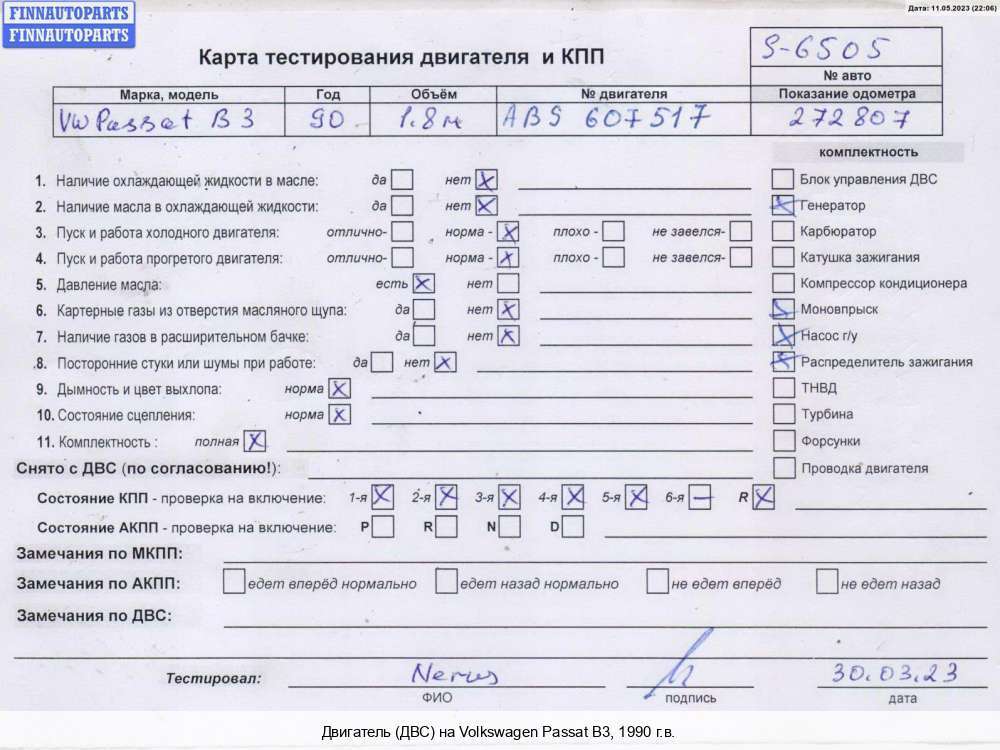 FINNAUTOPARTS
FINNAUTOPARTS
Дата: 11.05.2023 (22:06)
Карта тестирования двигателя и КПП
S-6505
№ авто
Марка, модель Год Объём № двигателя Показание одометра
VW Passat B3 90 1.8 м ABS 607517 272807
комплектность
1. Наличие охлаждающей жидкости в масле: да нет X
Блок управления ДВС
2. Наличие масла в охлаждающей жидкости: да нет X
X Генератор
3. Пуск и работа холодного двигателя: отлично- норма - X плохо - не завелся-
Карбюратор
4. Пуск и работа прогретого двигателя: отлично- норма - X плохо - не завелся-
Катушка зажигания
5. Давление масла: есть X нет
Компрессор кондиционера
6. Картерные газы из отверстия масляного щупа: да нет X
X Моновпрыск
7. Наличие газов в расширительном бачке: да нет X
X Насос г/у
8. Посторонние стуки или шумы при работе: да нет X
X Распределитель зажигания
9. Дымность и цвет выхлопа: норма X
ТНВД
10. Состояние сцепления: норма X
Турбина
11. Комплектность : полная X
Форсунки
Снято с ДВС (по согласованию!):
Проводка двигателя
Состояние КПП - проверка на включение: 1-я X 2-я X 3-я X 4-я X 5-я X 6-я — R X
Состояние АКПП - проверка на включение: P R N D
Замечания по МКПП:
Замечания по АКПП: едет вперёд нормально едет назад нормально не едет вперёд не едет назад
Замечания по ДВС:
Тестировал: Nerus 30.03.23
ФИО подпись дата
Двигатель (ДВС) на Volkswagen Passat B3, 1990 г.в.